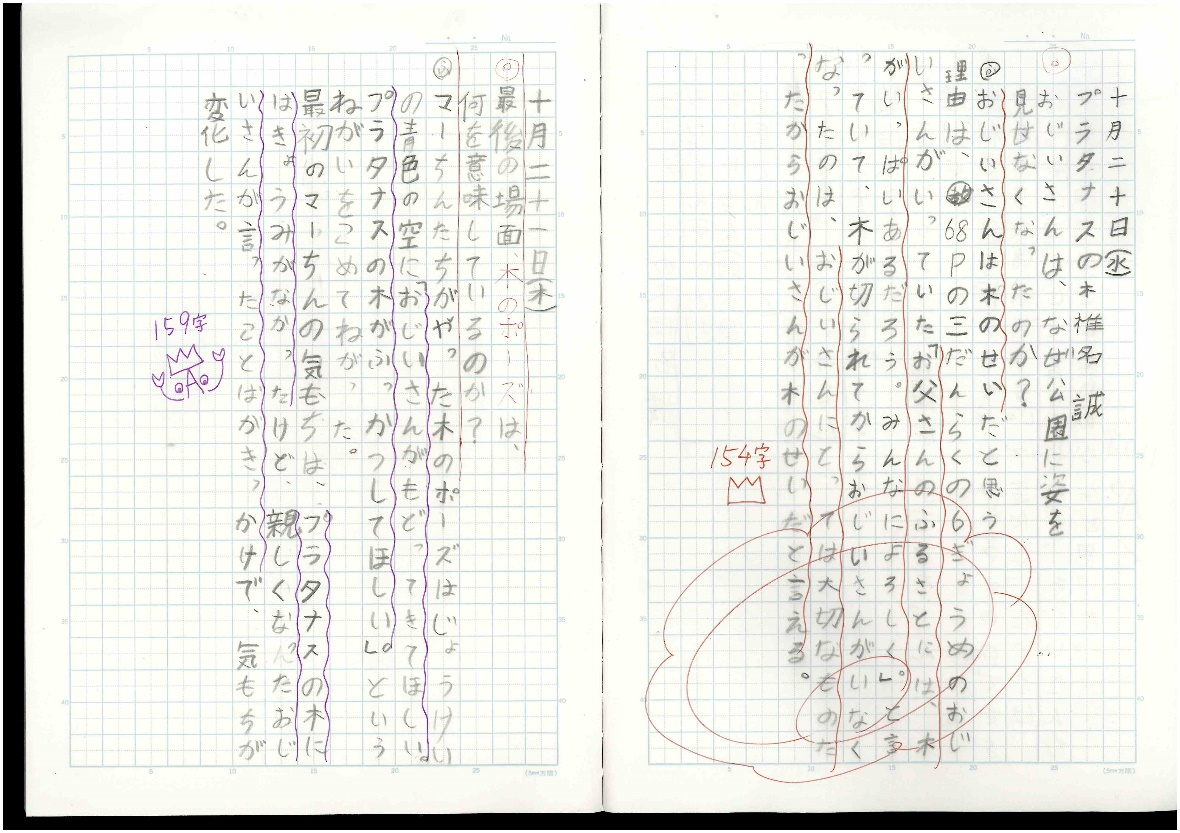 十月二十日(水)
プラタナスの木 椎名 誠
◎
おじいさんは、なぜ公園に姿を
見せなくなったのか?
おじいさんは木のせいだと思う
理由は、68Pの三だんらくの6ぎょうめのおじ
いさんがいっていた「お父さんのふるさとには、木
がいっぱいあるだろう。みんなによろしく。」と言
っていて、木が切られてからおじいさんがいなく
なったのは、おじいさんにとっては大切なものだ
ったからおじいさんが木のせいだと言える。
154字
十月二十一日(木)
◎最後の場面、木のポーズは、
何を意味しているのか?
マーちんたちがやった木のポーズはじょうけい
の青色の空に「おじいさんがもどってきてほしい。
プラタナスの木がふっかつしてほしい。」という
ねがいをこめてねがった。
最初のマーちんの気もちは、プラタナスの木に
はきょうみがなかったけど、親しくなったおじ
いさんが言ったことばがきっかけで、気もちが
変化した。
159字